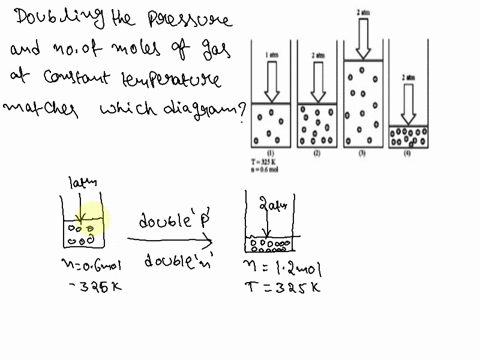 Doubling the pressure
and no. of moles of gas
at constant temperature
matches which diagram?
1 atm
2 atm
2 atm
2 atm
(1)
(2)
(3)
(4)
T = 325 K
n = 0.6 mol
1atm
n=0.6mol
-325K
double 'p'
double 'n'
2atm
n=1.2mol
T=325K